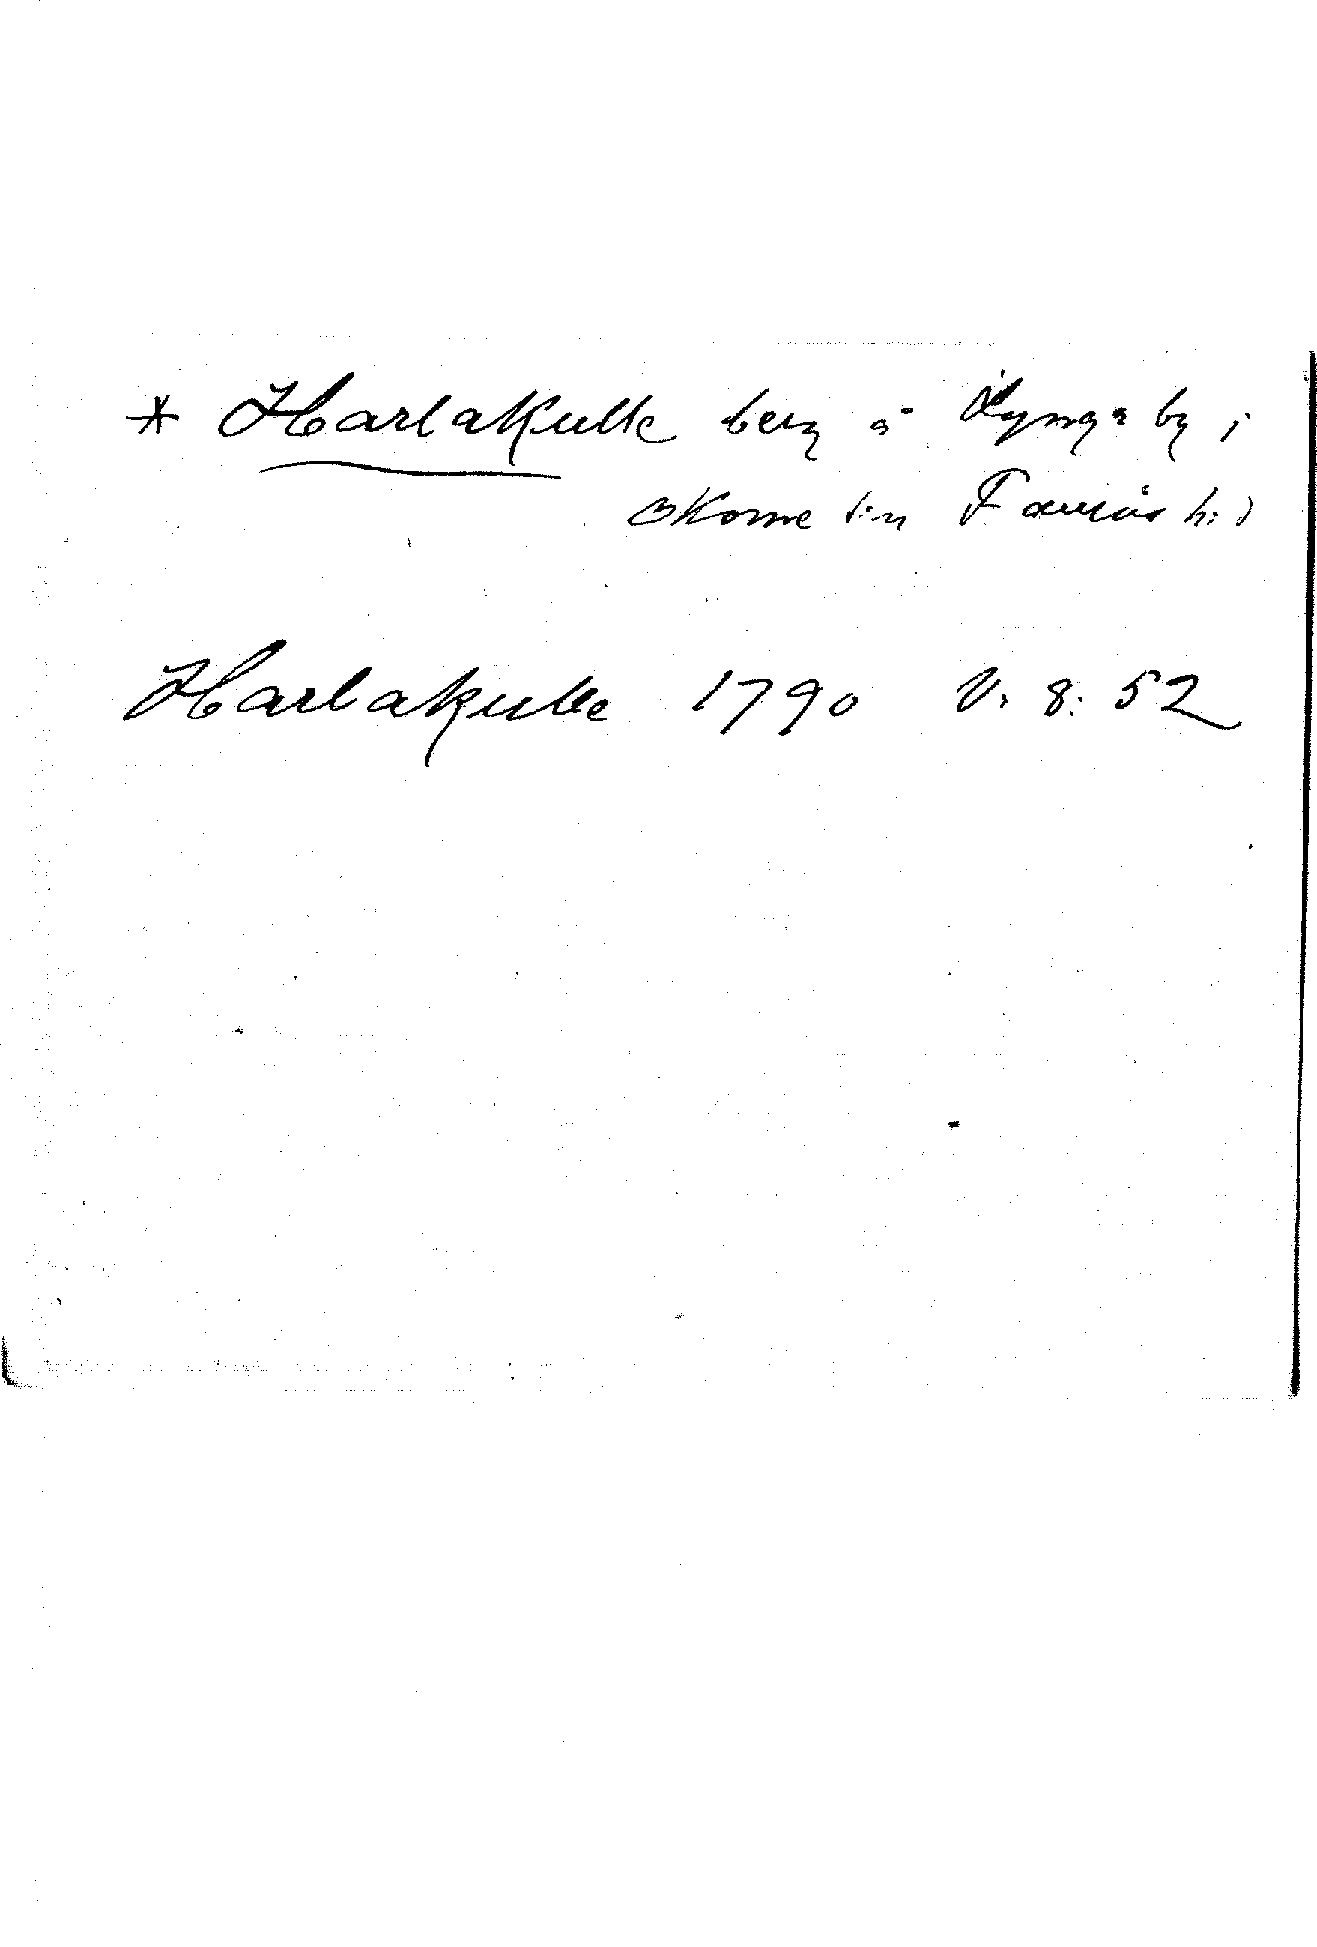 * Harlakulle berg å Lynga by i
Skorne sn Faurås hd
Harlakulle 1790 V. 8: 52